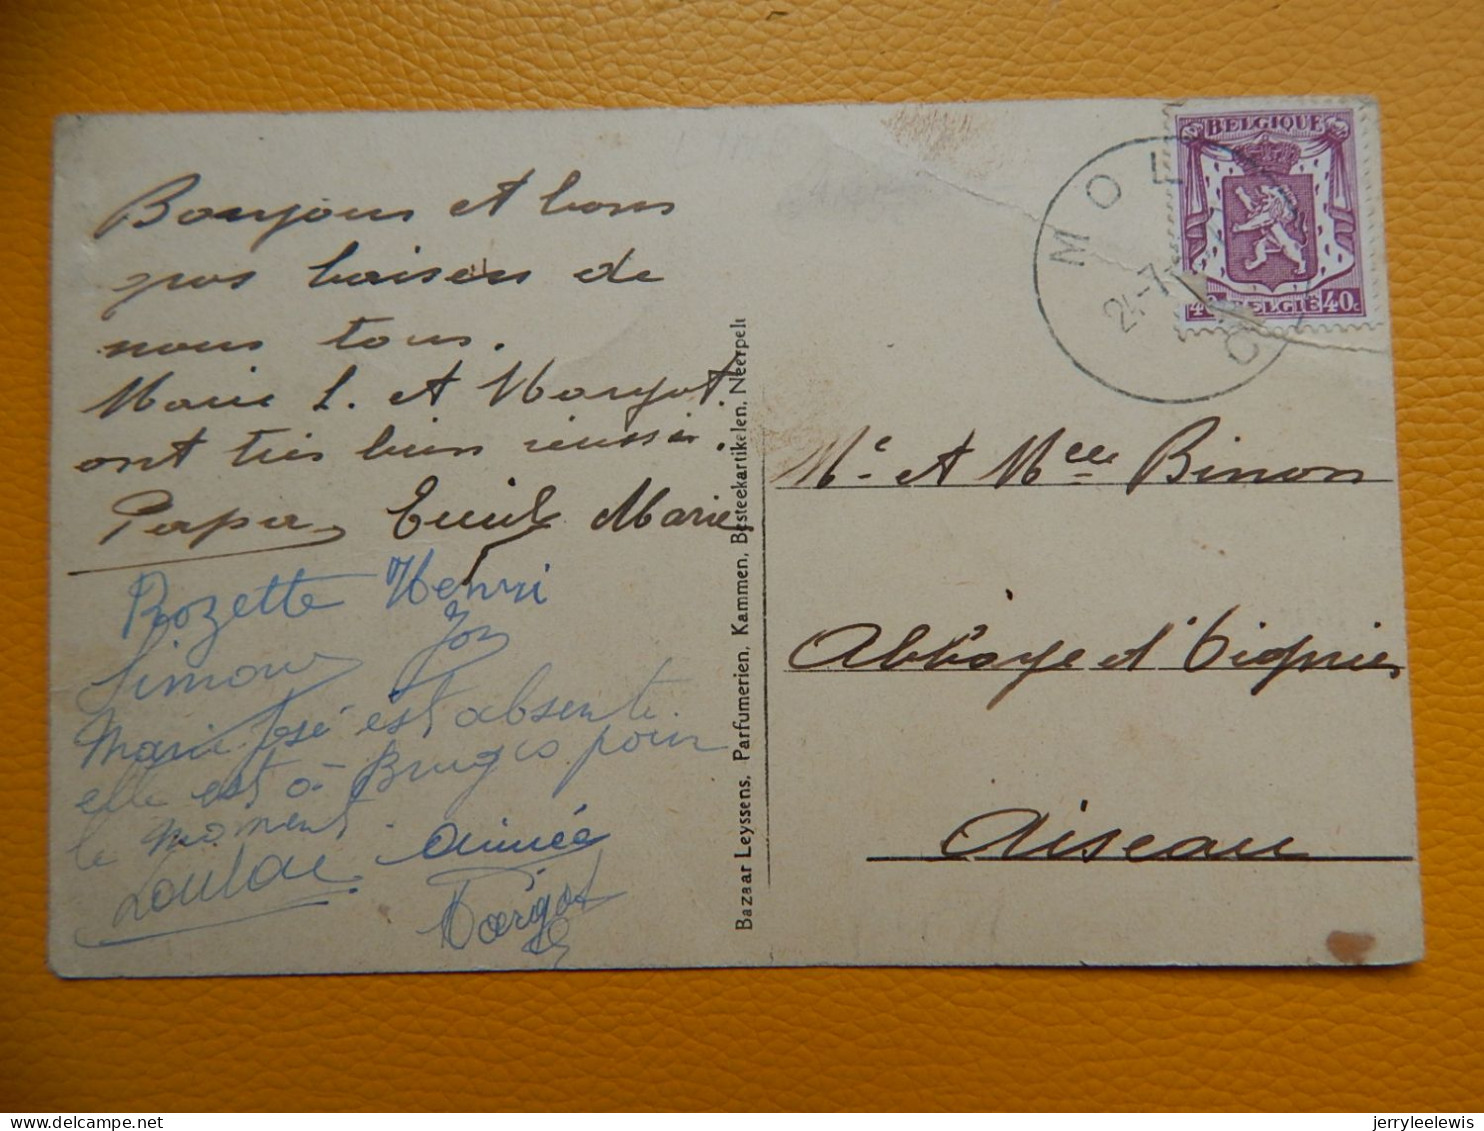 Bonjour et bons
gros baisers de
nous tous.
Marie L. et Margot.
ont très bien réussi.
Papa Emile Marie
Rozette Henri
Simone Jos
Marie José est absente
elle est à Bruges pour
le moment.
Loulou Aimée
Margot
Bazaar Leyssens, Parfumerien, Kammen, Besteekartikelen, Neerpelt
BELGIQUE
40 BELGIË 40c
MOL
24-7
Mr et Melle Binon
Abbaye d'Oignies
Aiseau
jerryleelewis